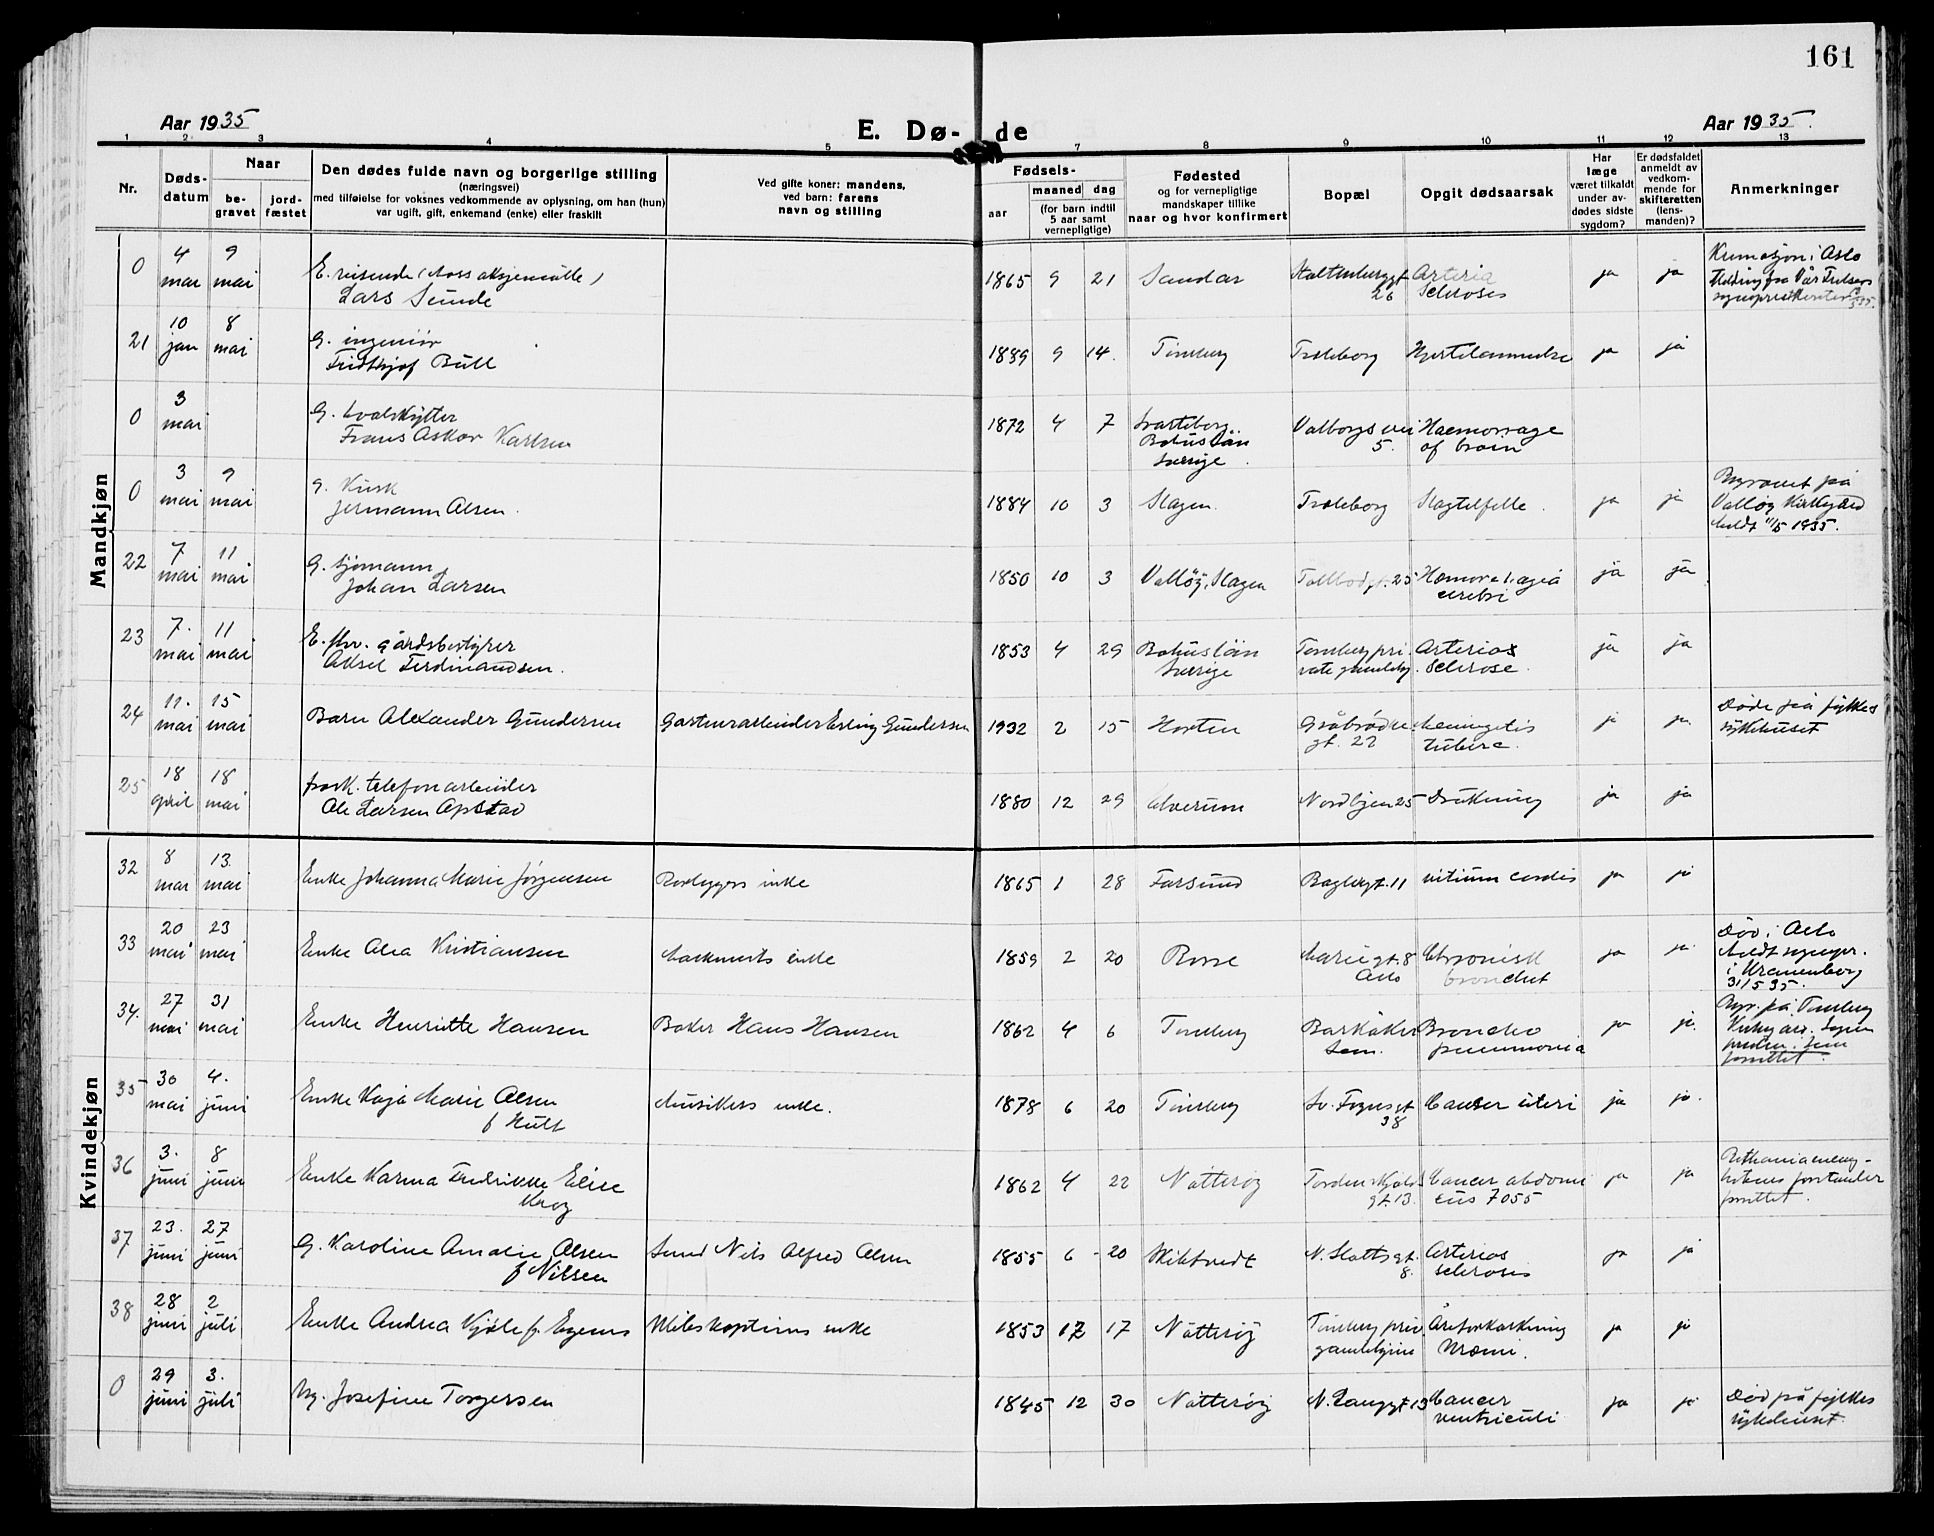 161
Aar 1935
E. Dø-de
Aar 1935.
1 2 3 4 5 7 8 9 10 11 12 13
Nr.
Døds-
datum
Naar
be-
gravet
jord-
fæstet
Den dødes fulde navn og borgerlige stilling
(næringsvei)
med tilføielse for voksnes vedkommende av oplysning, om han (hun)
var ugift, gift, enkemand (enke) eller fraskilt
Ved gifte koner: mandens,
ved barn: farens
navn og stilling
Fødsels-
aar
maaned
dag
(for barn indtil
5 aar samt
vernepligtige)
Fødested
og for vernepligtige
mandskaper tillike
naar og hvor konfirmert
Bopæl
Opgit dødsaarsak
Har
læge
været tilkaldt
under av-
dødes sidste
sygdom?
Er dødsfaldet
anmeldt av
vedkom-
mende for
skifteretten
(lens-
manden)?
Anmerkninger
Mandkjøn
0 4 mai 9 mai E. reisende
Lars Sunde
1865 9 21 Sandar
26
Arteria
Sclerosis
ja ja
21 10 jan 8 mai G. ingeniør
Fridthjof Bull
1889 9 14. Tønsberg Træleborg Hjertelammelse ja ja
0 3 mai G. hvalskytter
Frans Oskar Karlsen
1872 4 7
Bohuslän
Sverige.
Valborgs vei
5.
Haemorrage
of brain
0 3 mai 9 mai G. Kusk
Jermann Olsen.
1884 10 3 Slagen. Træleborg Slagtilfelle. ja ja
Begravet på
Valløy Kirkegård
Meldt 11/5 1935.
22 7 mai 11 mai G. sjømann
Johan Larsen
1850 10 3 Valløy, Slagen Tollbodgt. 25
cerebri
ja ja
23 7. mai 11 mai E. fhv. gårdsbestyrer
Aksel Ferdinandsen.
1853 4 29 Bohuslän
Sverige
Tønsberg pri
vate gamleby.
Arterios
sclerose.
ja ja
24 11. mai 15 mai Barn Alexander Gundersen
Gartnerarbeider Erling Gundersen
1932 2 15 Horten Gråbrødre
gt. 22
Meningitis
tuberc.
ja ja
Døde på fylkes
sykehuset
25 18 april 18 mai frask. telefonarbeider
Ole Larsen Opstad
1880 12 29 Elverum Nordbyen 25 Drukning ja ja
Kvindekjøn
32 8 mai 13. mai Enke Johanna Marie Jørgensen
enke
1865 1 28 Farsund Baglergt. 11 vitium cordis ja ja
33 20 mai 23 mai Enke Olea Kristiansen
enke
1859 2 20 Borre Mariegt. 8
Oslo
Chronisk
bronchit
ja ja
Død i Oslo
Meldt sognepr.
i Uranienborg
31/5 35.
34. 27 mai 31 mai Enke Henriette Hansen
Baker Hans Hansen
1862 4 6 Tønsberg Barkåker
Sem.
Broncho
pneumonia
ja ja.
Begr. på Tønsberg
Kirkegård. Sogne
presten i Sem
forrettet.
35 30 mai 4. juni Enke Kaja Marie Olsen
f Hult
Musikers enke.
1878 6 20 Tønsberg Sv. Foynsgt
38
Cancer uteri ja ja.
36 3. juni 8 juni Enke Karma Fredrikke Elise
Krog
1862 4 22 Nøtterøy Tordenskjolds
gt. 13.
Cancer abdomi
ja ja
forstander
forrettet.
37 23. juni 27 juni G. Karoline Amalie Olsen
f Nilsen
Smed Nils Alfred Olsen
1855 6 20 Skibtvedt N. Slottsgt.
8.
Arterios
sclerosis
ja ja
38 28 juni 2 juli Enke Andrea Kjøle f. Egenes
enke
1853 12 17 Nøtterøy Tønsberg priv.
gamlehjem
Åreforkalkning
Uræmi.
ja ja
0 29 juni 3. juli Ug. Josefine Torgersen
1845 12 30 Nøtterøy N. Langgt 13 Cancer
ventriculi
ja ja
Død på fylkes
sykehuset.